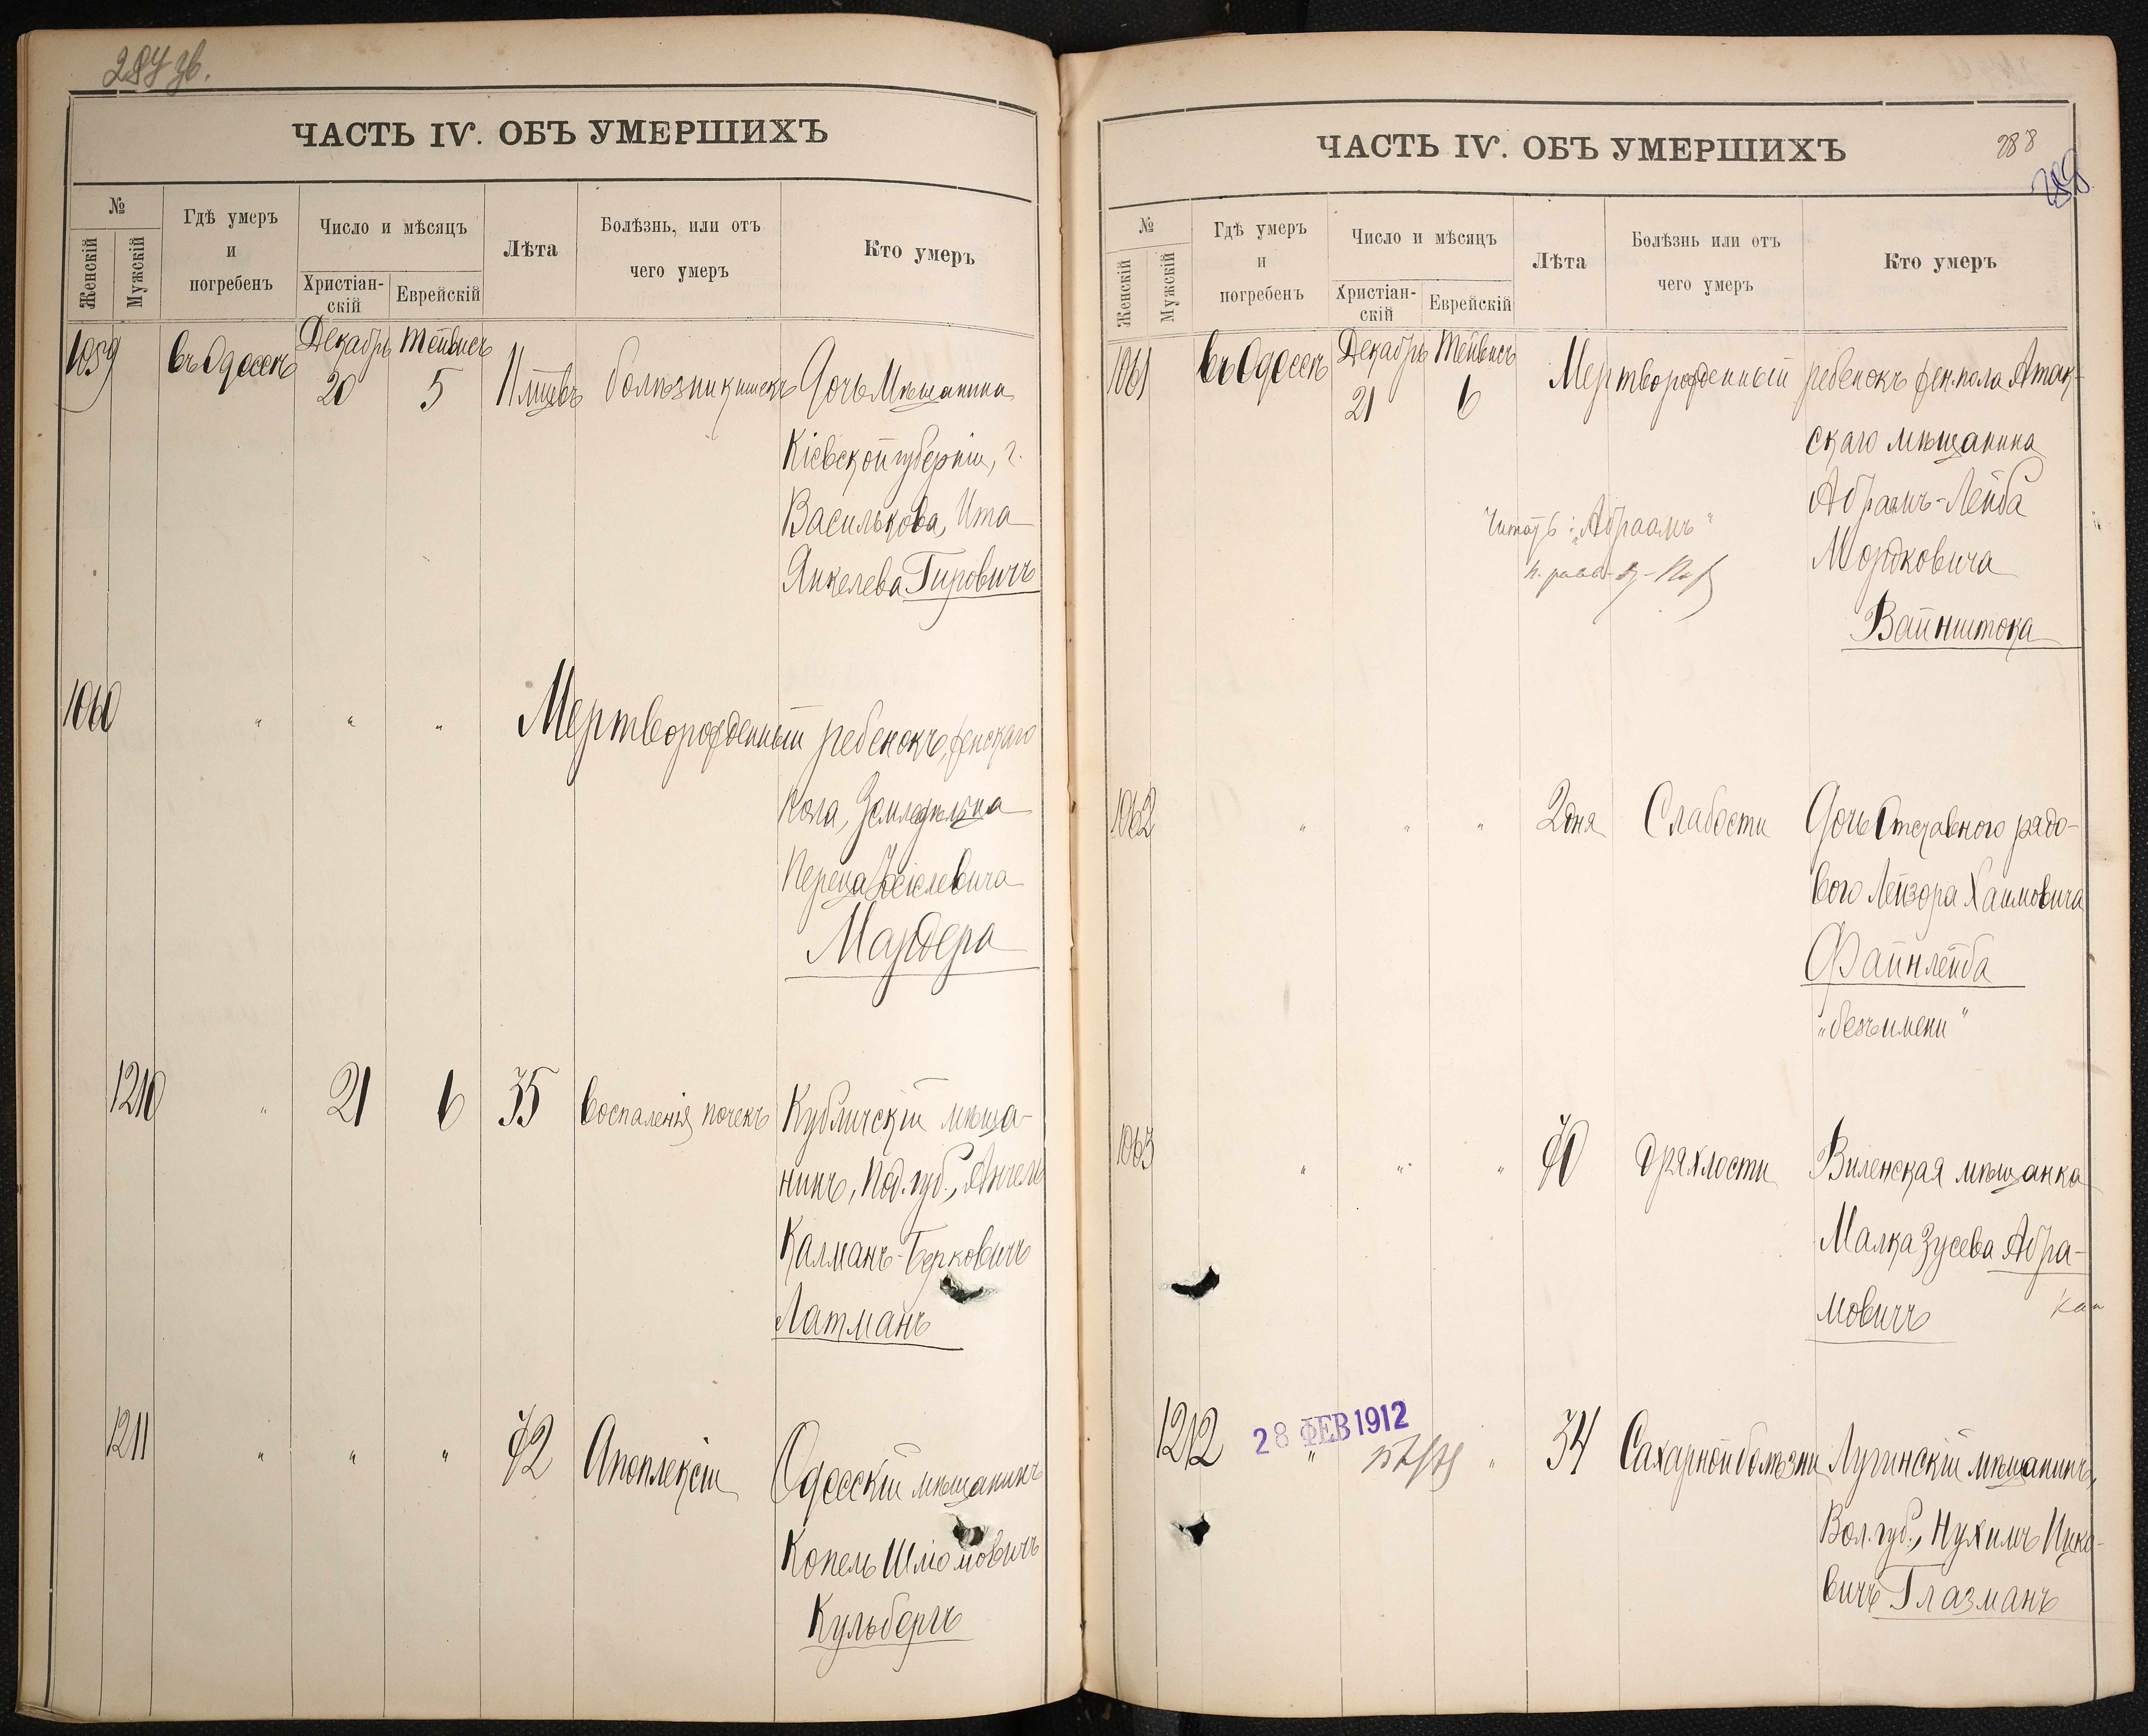 287 зв.
ЧАСТЬ IV. ОБЪ УМЕРШИХЪ
№
Женскій
Мужскій
Гдѣ умеръ
и
погребенъ
Число и мѣсяцъ
Христіан-
скій
Еврейскій
Лѣта
Болѣзнь, или отъ
чего умеръ
Кто умеръ
1059 въ Одессѣ Декабрь 20 Тейвисъ 5 11 мѣсяц болѣзни кишекъ Дочь Мѣщанина
Кіевской губерніи, г.
Василькова, Ита
Янкелева Гировичъ
1060 " " " Мертворожденный ребенокъ, женскаго
пола, Земледѣльца
Переца
Мардера
1210 " 21 6 35 Воспаленія почекъ Кубличскій мѣща-
нинъ, Под. губ., Анчель
Калманъ-Берковичъ
Латманъ
1211 " " " 72 Апоплексіи Одесскій мѣщанинъ
Копель Шліомовичъ
Кульбергъ
ЧАСТЬ IV. ОБЪ УМЕРШИХЪ
288
№
Женскій
Мужскій
Гдѣ умеръ
и
погребенъ
Число и мѣсяцъ
Христіан-
скій
Еврейскій
Лѣта
Болѣзнь или отъ
чего умеръ
Кто умеръ
1061 въ Одессѣ Декабрь 21 Тейвисъ 6 Мертворожденный ребенокъ жен. пола Атак-
скаго мѣщанина
Абрамъ-Лейба
Мордковича
Вайнштока
Читать: „Абраамъ"
1062 " " " 2 дня Слабости Дочь Отставного рядо-
вого Лейзора Хаимовича
Файнлейба
„безъ имени"
1063 " " " 70 Дряхлости Виленская мѣщанка
Малка Зусева Абра-
мовичъ
1212 28 ФЕВ 1912 " " 34 Сахарной болѣзни Лугинскій мѣщанинъ,
Вол. губ., Нухимъ Ицко-
вичъ Глазманъ